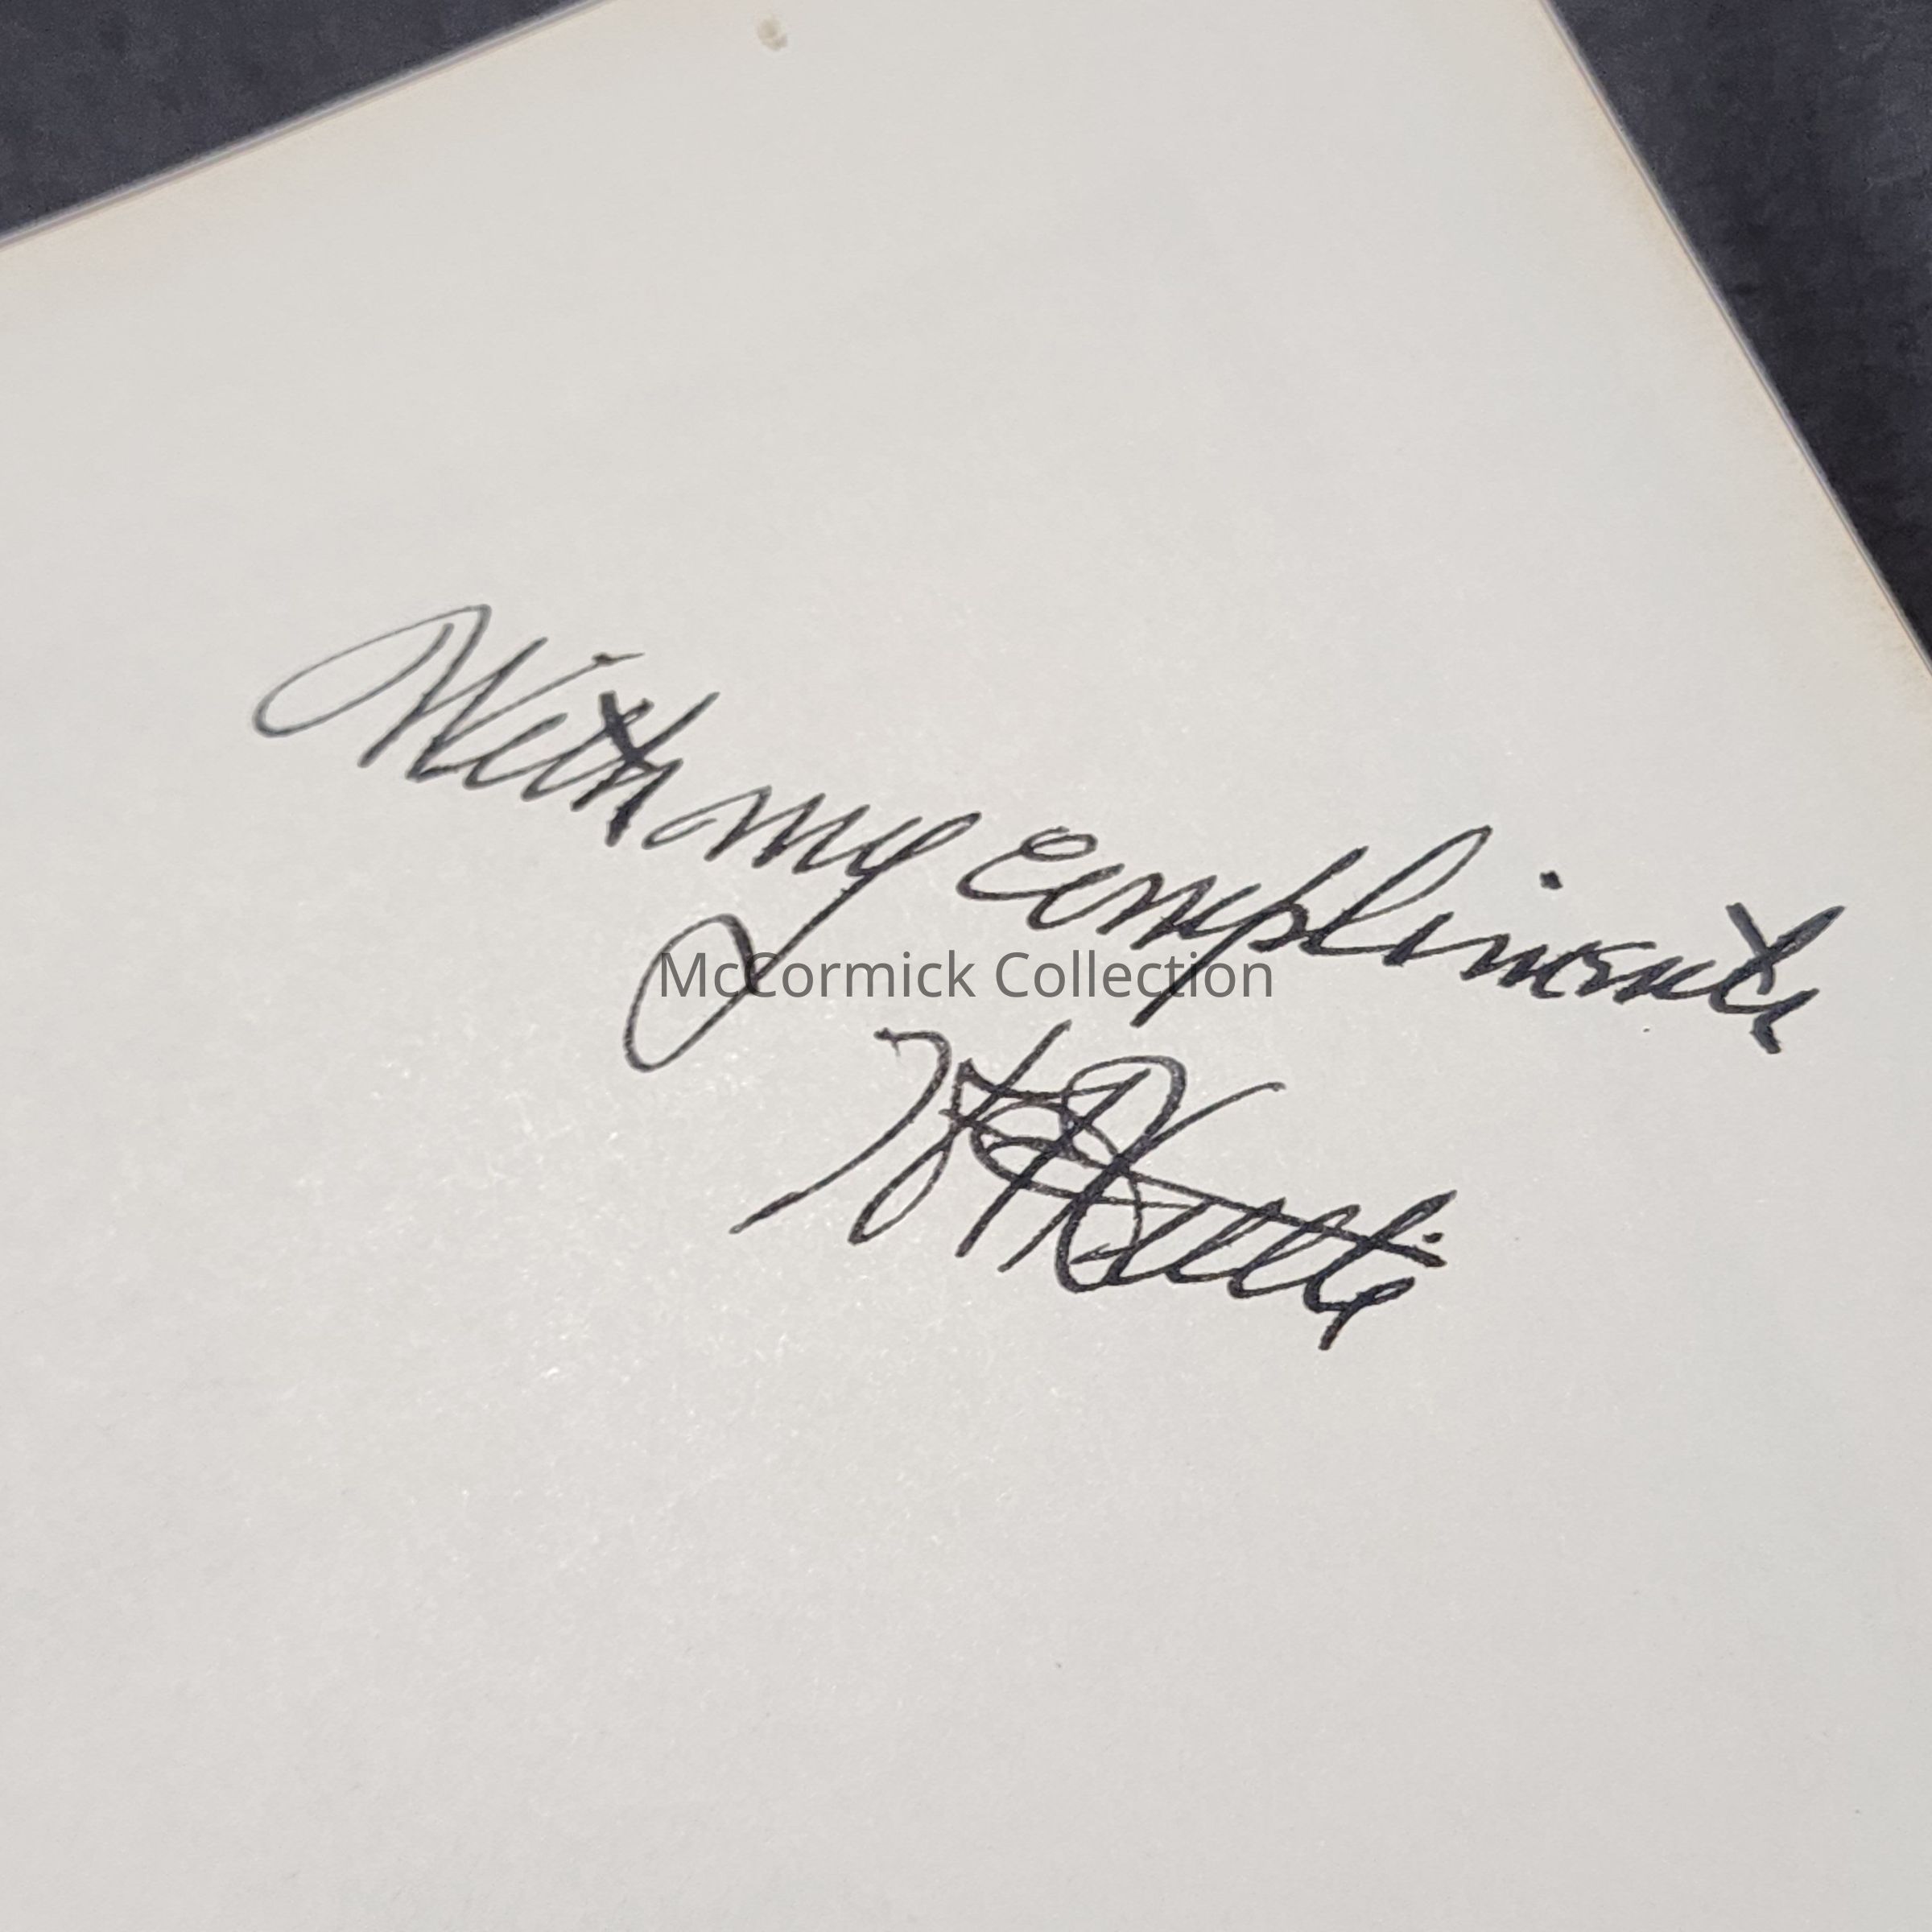 With my compliments
McCormick Collection